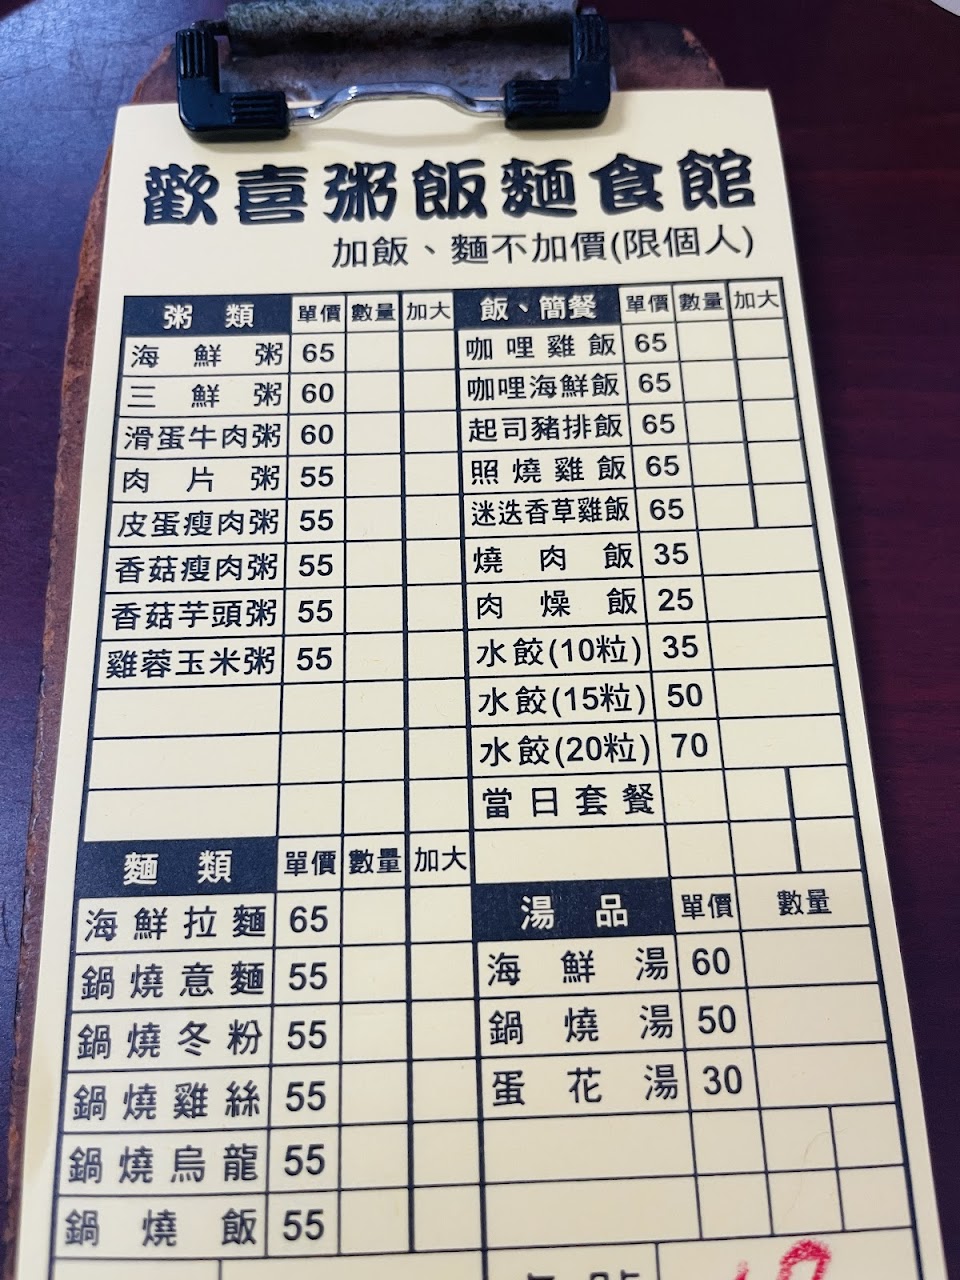 歡喜粥飯麵食館
加飯、麵不加價(限個人)
粥類 單價 數量 加大
海鮮粥 65
三鮮粥 60
滑蛋牛肉粥 60
肉片粥 55
皮蛋瘦肉粥 55
香菇瘦肉粥 55
香菇芋頭粥 55
雞蓉玉米粥 55
麵類 單價 數量 加大
海鮮拉麵 65
鍋燒意麵 55
鍋燒冬粉 55
鍋燒雞絲 55
鍋燒烏龍 55
鍋燒飯 55
飯、簡餐 單價 數量 加大
咖哩雞飯 65
咖哩海鮮飯 65
起司豬排飯 65
照燒雞飯 65
迷迭香草雞飯 65
燒肉飯 35
肉燥飯 25
水餃(10粒) 35
水餃(15粒) 50
水餃(20粒) 70
當日套餐
湯品 單價 數量
海鮮湯 60
鍋燒湯 50
蛋花湯 30